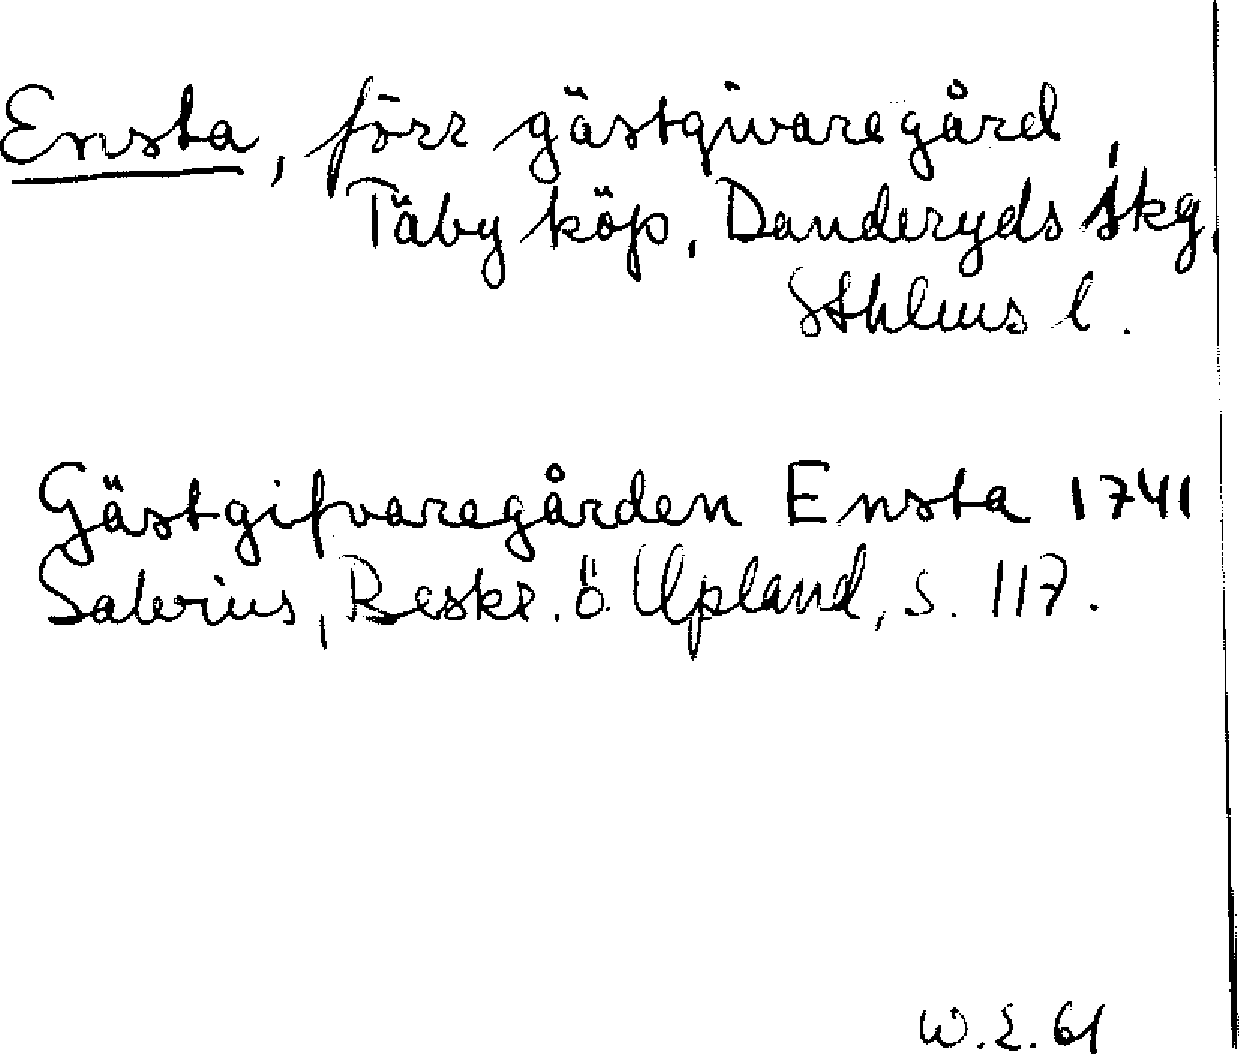 Ensta, förr gästgivaregård,
Täby köp, Danderyds skg,
Sthlms l.
Gästgifvaregården Ensta 1741
Salvius, Beskr. ö Upland, s. 117.
W.E. 61